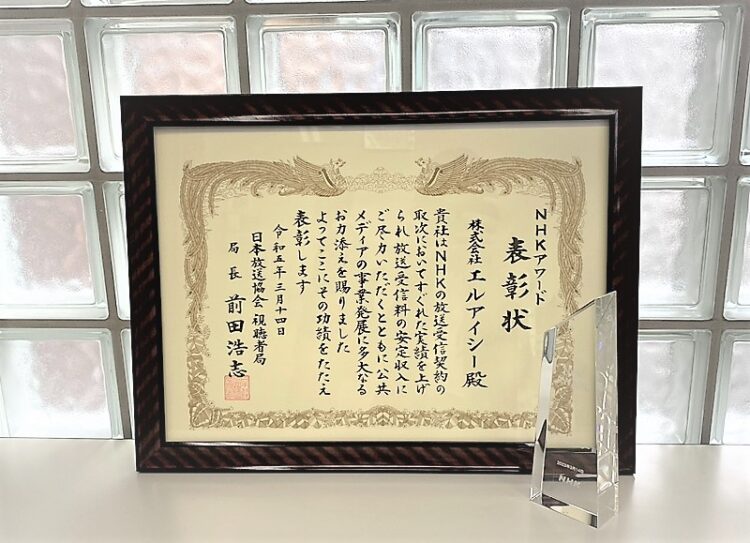 NHKアワード
表彰状
株式会社 エルアイシー 殿
貴社はNHKの放送受信契約の
取次においてすぐれた実績を上げ
られ放送受信料の安定収入に
ご尽力いただくとともに公共
メディアの事業発展に多大なる
お力添えを賜りました
よってここにその功績をたたえ
表彰します
令和五年三月十四日
日本放送協会 視聴者局
局長 前田浩志
NHK